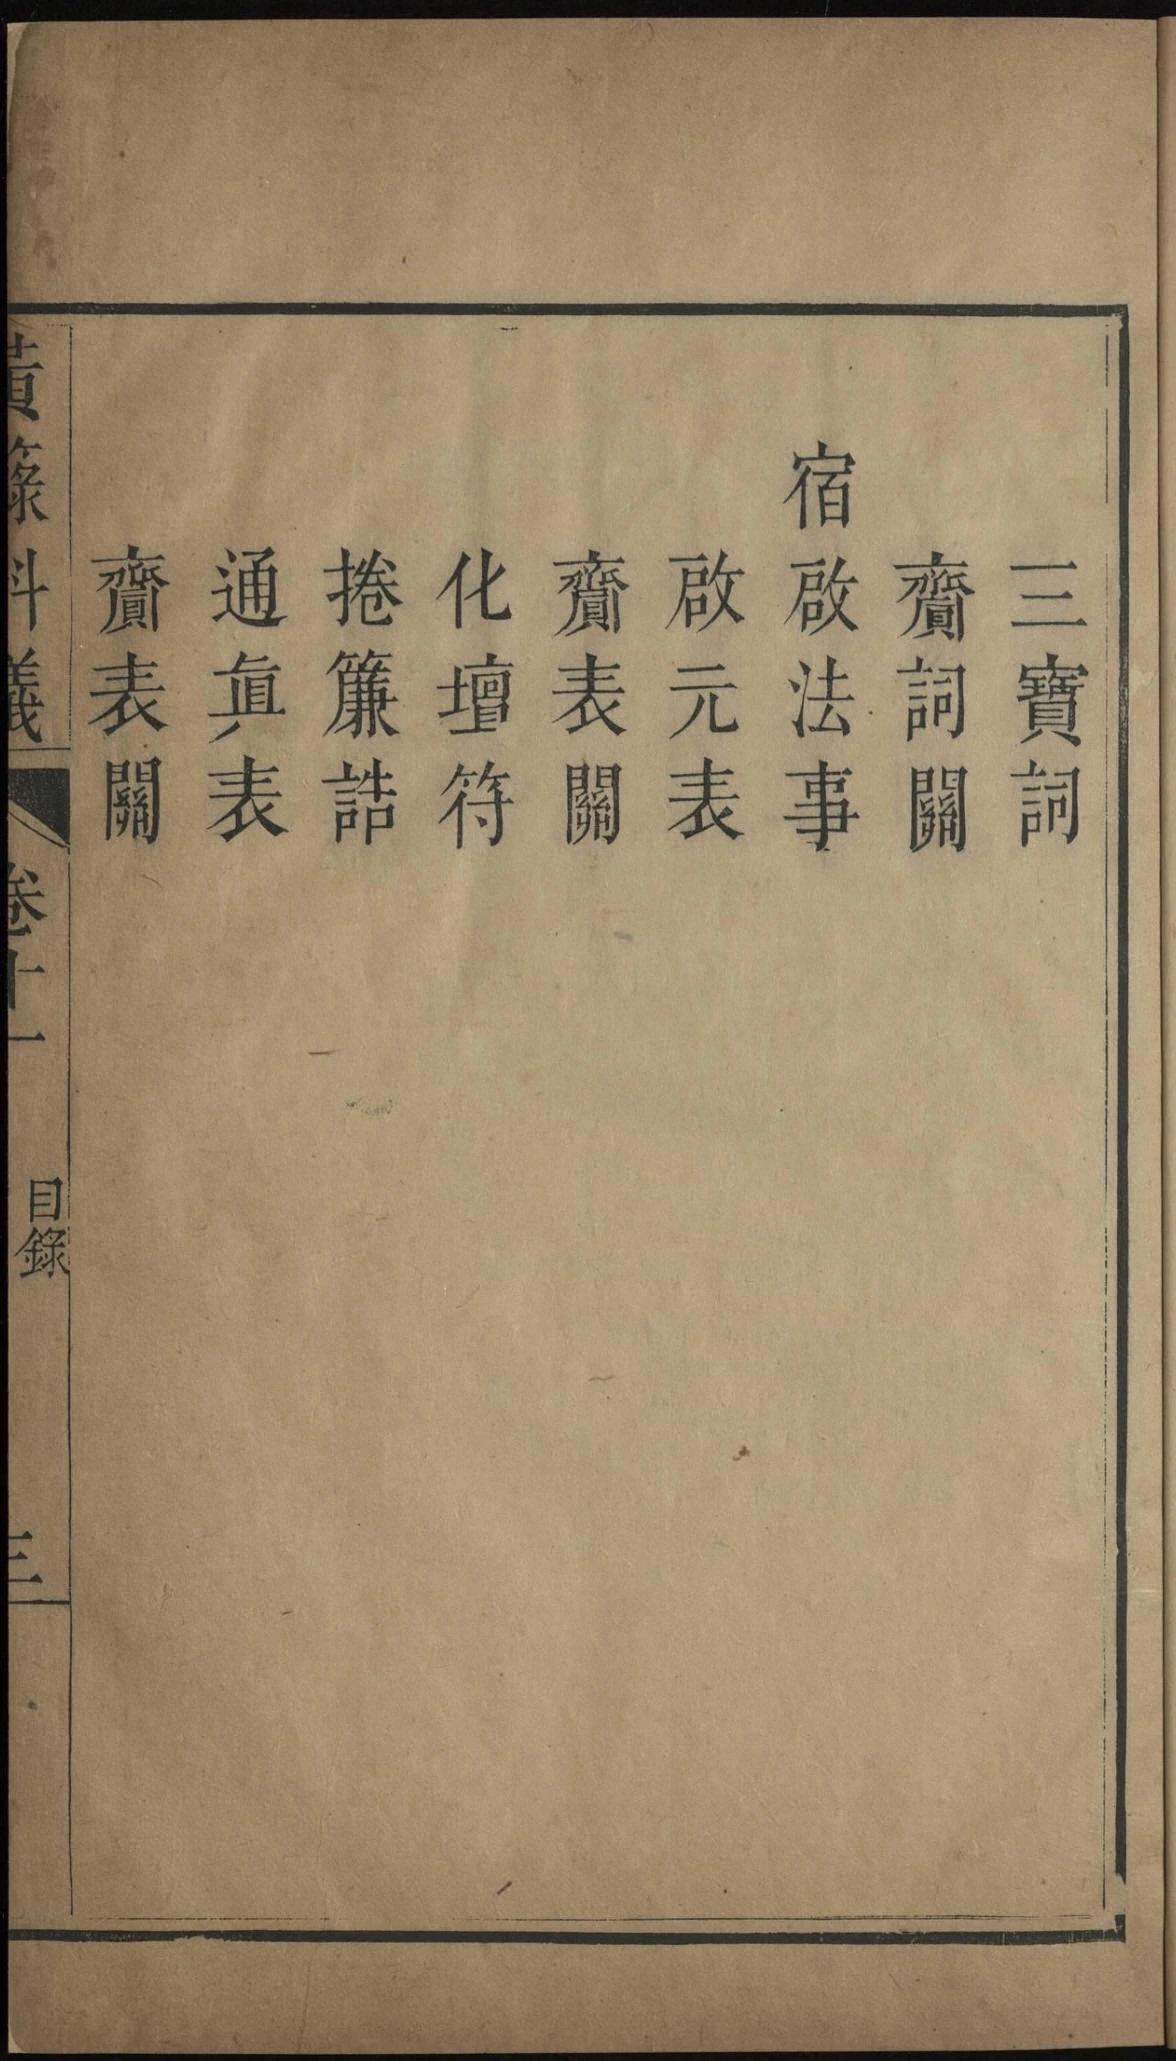 三寶詞
齎詞關
宿啟法事
啟元表
齎表關
化壇符
捲簾誥
通眞表
齎表關
黃籙科儀
卷十一
目錄
三